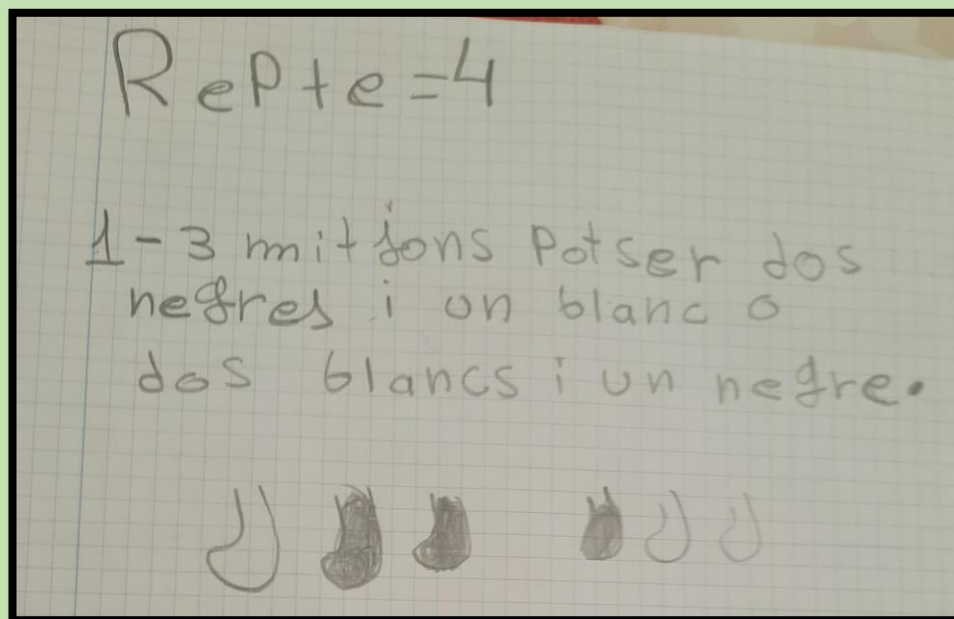 RePte=4
1-3 mitjons Potser dos
negres i un blanc o
dos blancs i un negre.